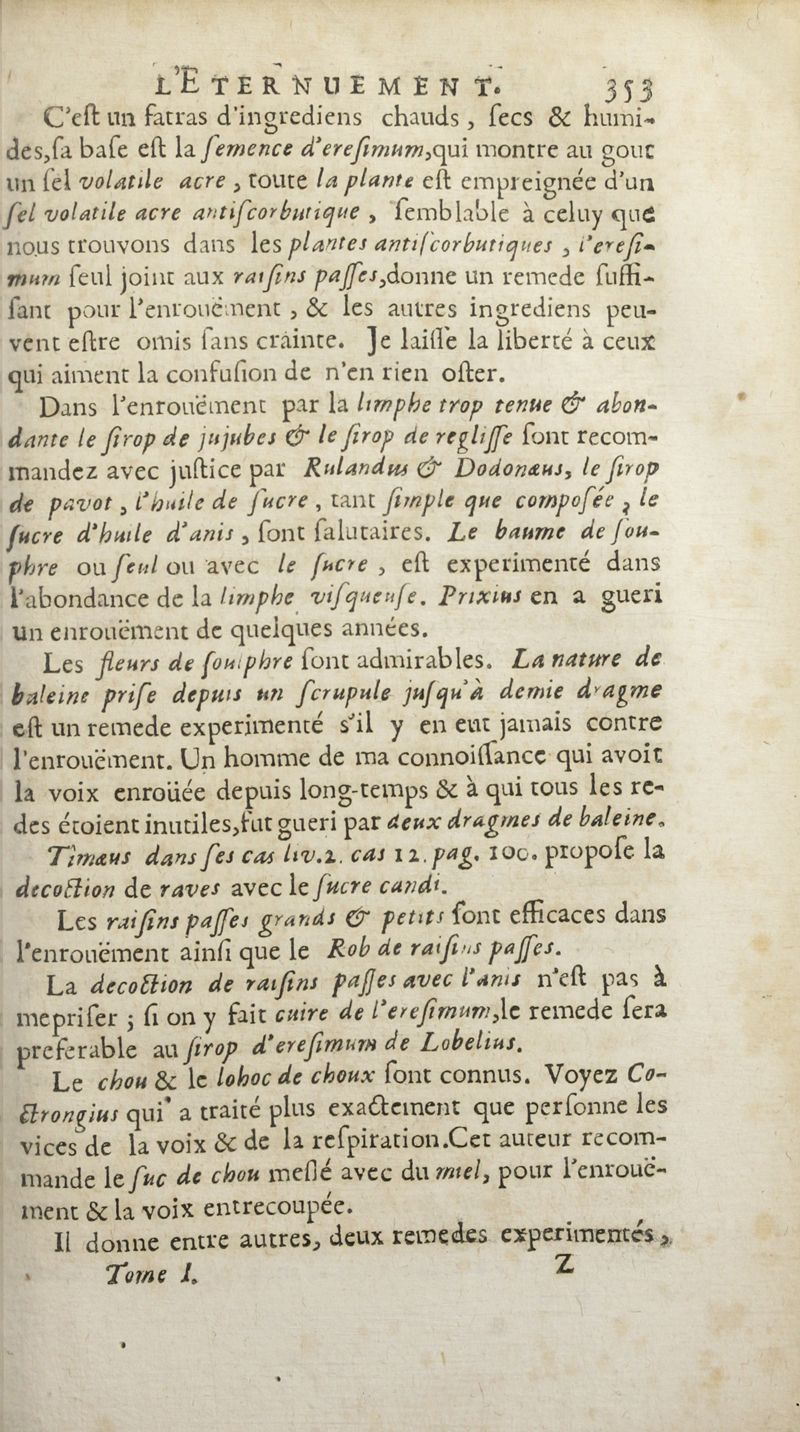 L'ETERNUEMENT. 353
C'eſt un fatras d'ingrediens chauds, ſecs & humi-
des,ſa baſe eſt la ſemence d'ereſimum,qui montre au gout
un ſel volatile acre, toute la plante eſt empreignée d'un
ſel volatile acre antiſcorbutique, ſemblable à celuy que
nous trouvons dans les plantes antiſcorbutiques, l'ereſi-
mum ſeul joint aux raiſins paſſes,donne un remede ſuffi-
ſant pour l'enrouëment, & les autres ingrediens peu-
vent eſtre omis ſans crainte. Je laiſſe la liberté à ceux
qui aiment la confuſion de n'en rien oſter.
Dans l'enrouëment par la limphe trop tenue & abon-
dante le ſirop de jujubes & le ſirop de regliſſe ſont recom-
mandez avec juſtice par Rulandus & Dodonæus, le ſirop
de pavot, l'huile de ſucre, tant ſimple que compoſée, le
ſucre d'huile d'anis, ſont ſalutaires. Le baume de ſou-
phre ou ſeul ou avec le ſucre, eſt experimenté dans
l'abondance de la limphe viſqueuſe. Prixius en a gueri
un enrouëment de quelques années.
Les fleurs de ſoulphre ſont admirables. La nature de
baleine priſe depuis un ſcrupule juſqu'à demie dragme
eſt un remede experimenté s'il y en eut jamais contre
l'enrouëment. Un homme de ma connoiſſance qui avoit
la voix enroüée depuis long-temps & à qui tous les re-
des étoient inutiles,fut gueri par deux dragmes de baleine.
Timæus dans ſes cas liv.2. cas 12. pag. 100. propoſe la
decoction de raves avec le ſucre candi.
Les raiſins paſſes grands & petits ſont efficaces dans
l'enrouëment ainſi que le Rob de raiſins paſſes.
La decoction de raiſins paſſes avec l'anis n'eſt pas à
mepriſer ; ſi on y fait cuire de l'ereſimum,le remede ſera
preferable au ſirop d'ereſimum de Lobelius.
Le chou & le lohoc de choux ſont connus. Voyez Co-
ctrongius qui a traité plus exactement que perſonne les
vices de la voix & de la reſpiration.Cet auteur recom-
mande le ſuc de chou meſlé avec du miel, pour l'enrouë-
ment & la voix entrecoupée.
Il donne entre autres, deux remedes experimentés,
Tome I. Z